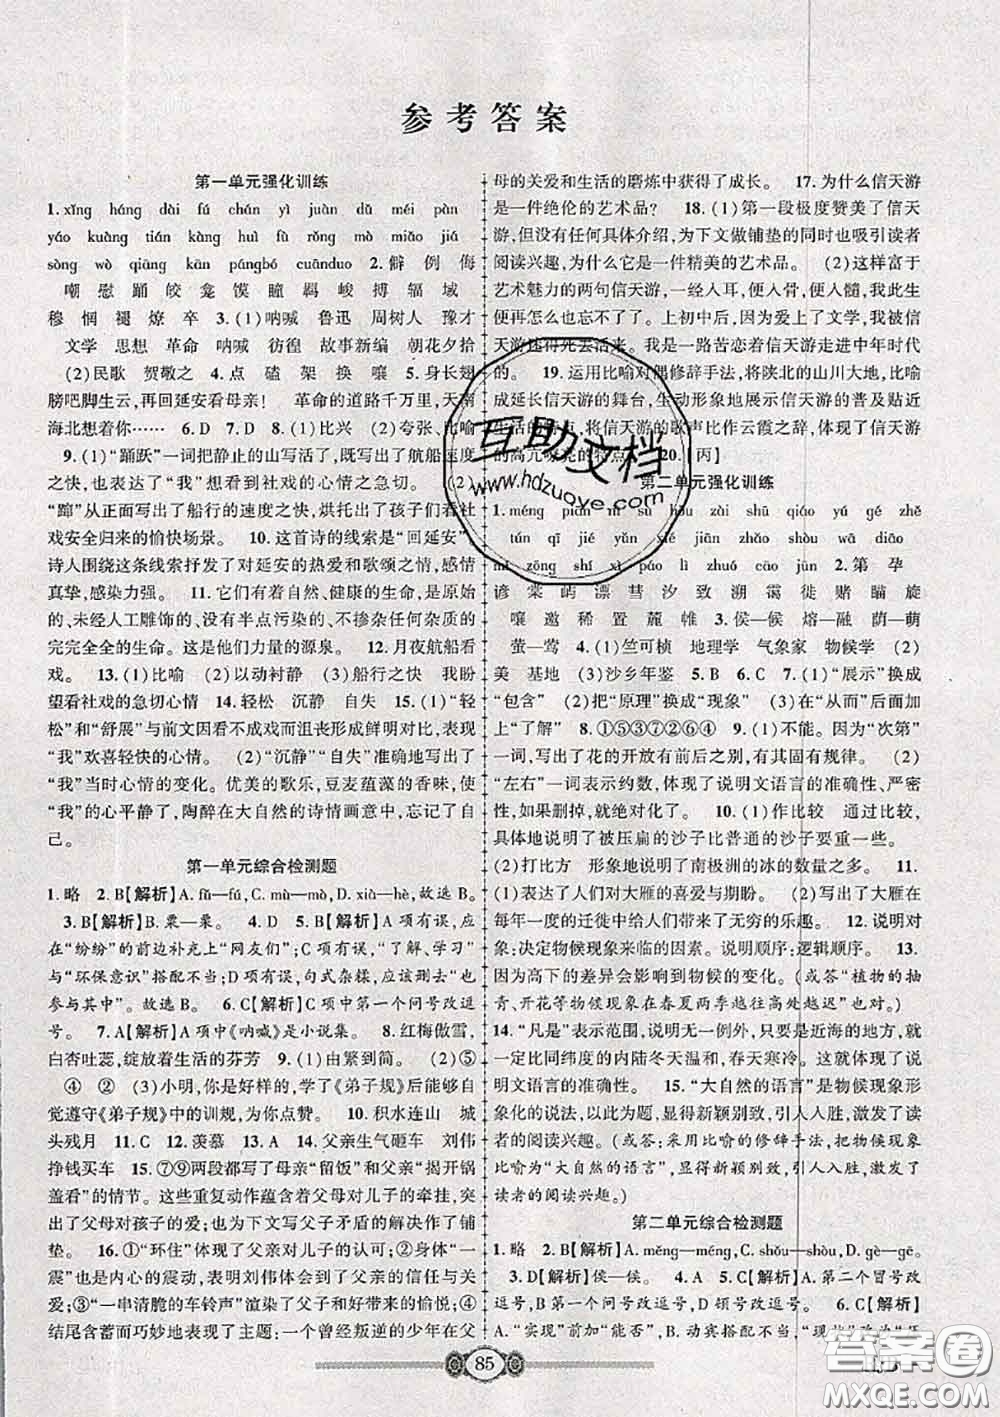 参考答案
第一单元强化训练
1.xīng háng dài fú chán yì juàn dá méi pàn
yáo kuàng tián kàng huì fù rǒng mò miǎo jiá
sòng wò qiāng kān pángbó cuānduo 2.僻 倒 侮
嘲 慰 踊 皎 龛 馍 瞳 羁 峻 搏 辐 域
穆 惘 褪 燎 卒 3.(1)呐喊 鲁迅 周树人 豫才
文学 思想 革命 呐喊 彷徨 故事新编 朝花夕拾
(2)民歌 贺敬之 4.点 磕 架 换 嚷 5.身长翅
膀吧脚生云,再回延安看母亲! 革命的道路千万里,天南
海北想着你…… 6.D 7.D 8.(1)比兴 (2)夸张、比喻
9.(1)“踊跃”一词把静止的山写活了,既写出了航船速度
之快,也表达了“我”想看到社戏的心情之急切。 (2)
“蹿”从正面写出了船行的速度之快,烘托出了孩子们看社
戏安全归来的愉快场景。 10.这首诗的线索是“回延安”,
诗人围绕这条线索抒发了对延安的热爱和歌颂之情,感情
真挚,感染力强。 11.它们有着自然、健康的生命,是朴实
的、未经人工雕饰的、没有半点污染的、不掺杂任何杂质的
完完全全的生命。这是他们力量的源泉。 12.月夜航船看
戏。 13.(1)比喻 (2)以动衬静 (3)船行之快 我盼
望看社戏的急切心情 14.轻松 沉静 自失 15.(1)“轻
松”和“舒展”与前文因看不成戏而沮丧形成鲜明对比,表现
“我”欢喜轻快的心情。 (2)“沉静”“自失”准确地写出了
“我”当时心情的变化。优美的歌乐,豆麦蕴藻的香味,使
“我”的心平静了,陶醉在大自然的诗情画意中,忘记了自
己。
第一单元综合检测题
1.略 2.B[解析]A.fǔ—fú,C.mù—mò,D.xià—hè,故选B。
3.B[解析]B.粟—栗。 4.D 5.B[解析]A项成分残缺,应
在“纷纷”的前边补充上“网友们”;C项成分残缺,“了解、学习”
与“环保意识”搭配不当;D项有语病,句式杂糅,应该删去“也
参与其中”。故选B。 6.C[解析]C项中第一个问号改逗
号。 7.A[解析]A项中《呐喊》是小说集。 8.红梅傲雪,
白杏吐蕊,绽放着生活的芬芳 9.(1)由繁到简。 (2)⑤
④ ② (3)小明,你是好样的,学了《弟子规》后能够自
觉遵守《弟子规》中的训规,为你点赞。 10.积水连山 城
头残月 11.C 12.羡慕 13.A 14.父亲生气砸车 刘伟
挣钱买车 15.⑦⑨两段都写了母亲“留饭”和父亲“掀开锅
盖看”的情节。这些重复动作蕴含着父母对儿子的牵挂,突
出了父母对孩子的爱;也为下文写父子矛盾的解决作了铺
垫。 16.①“环住”体现了父亲对儿子的认可;②身体“一
震”也是内心的震动,表明刘伟体会到了父亲的信任与关
爱;③“一串清脆的车铃声”渲染了父子和好带来的愉悦;④
结尾含蓄而巧妙地表现了主题:一个曾经叛逆的少年在父
母的关爱和生活的磨炼中获得了成长。 17.为什么信天游
是一件绝伦的艺术品? 18.(1)第一段极度赞美了信天
游,但没有任何具体介绍,为下文做铺垫的同时也吸引读者
阅读兴趣,为什么它是一件精美的艺术品。 (2)这样富于
艺术魅力的两句信天游,一经人耳,便入骨,便入髓,我此生
便再怎么也忘不了了。上初中时,因为爱上了文学,信
天游迷得死去活来。我是一路苦恋着信天游走进中年时代
的。 19.运用比喻和对偶修辞手法,将陕北的山川大地,比喻
成延长信天游的舞台,生动形象地展示信天游的普及贴近
生活的特点,将信天游的歌声比作云霞之辞,体现了信天游
的高亢嘹亮的特点。 20.[丙]
第二单元强化训练
zài shū qiáo yú gé zhě
tún qī jié yǔn xiá zhǎo shòu wā diāo
zōng shí xì páo lì zhuó cáo jùn 2.第 孕
谚 棠 屿 漂 彗 汐 致 溯 霭 徙 赌 瞄 旋
嚷 邀 稀 置 麓 帷 3.侯—候 熔—融 荫—萌
萤—莺 4.(1)竺可桢 地理学 气象家 物候学 (2)
美 基地 (3)沙乡年鉴 5.B 6.C 7.(1)“展示”换成
“包含” (2)把“原理”换成“现象” (3)在“从而”后面加
上“了解” 8.①⑤③⑦②⑥④ 9.(1)不能。因为“次第”
一词,写出了花的开放有前后之别,有其固有规律。 (2)
“左右”一词表示约数,体现了说明文语言的准确性、严密
性,如果删掉,就绝对化了。 10.(1)作比较 通过比较,
具体地说明了被压扁的沙子比普通的沙子要重一些。
(2)打比方 形象地说明了南极洲的冰的数量之多。 11.
(1)表达了人们对大雁的喜爱与期盼。 (2)写出了大雁
每年一度的迁徙中给人们带来了无穷的乐趣。 12.说明对
象:决定物候现象来临的因素。说明顺序:逻辑顺序。 13.
因为高下的差异会影响到物候的变化。(或答“植物的抽
青、开花等物候现象在春夏两季越往高处越迟”也对。)
14.“凡是”表示范围,说明无一例外,只要是近海的地方,就
一定比同纬度的内陆冬天温和,春天寒冷。这体现了说
明文语言的准确性。 15.“大自然的语言”是物候现象形
象化的说法,以此为题,新颖别致,引人入胜,激发了读者
的阅读兴趣。(或答:采用比喻的修辞手法,把物候现象
比喻为“大自然的语言”,显得新颖别致,引人入胜,激发了
读者的阅读兴趣。)
第二单元综合检测题
1.略 2.B[解析]A.měng—méng,C.shǒu—shòu,D.gè—gē。
3.D[解析]侯—候。 4.A 5.C[解析]A.第二个冒号改
逗号。B.第一个问号改逗号。D.顿号改逗号。 6.C[解析]
A.“实现”前加“能否”。B.动宾搭配不当,
85
互助文档
www.hdzuoye.com
答案圈
MXQE.COM